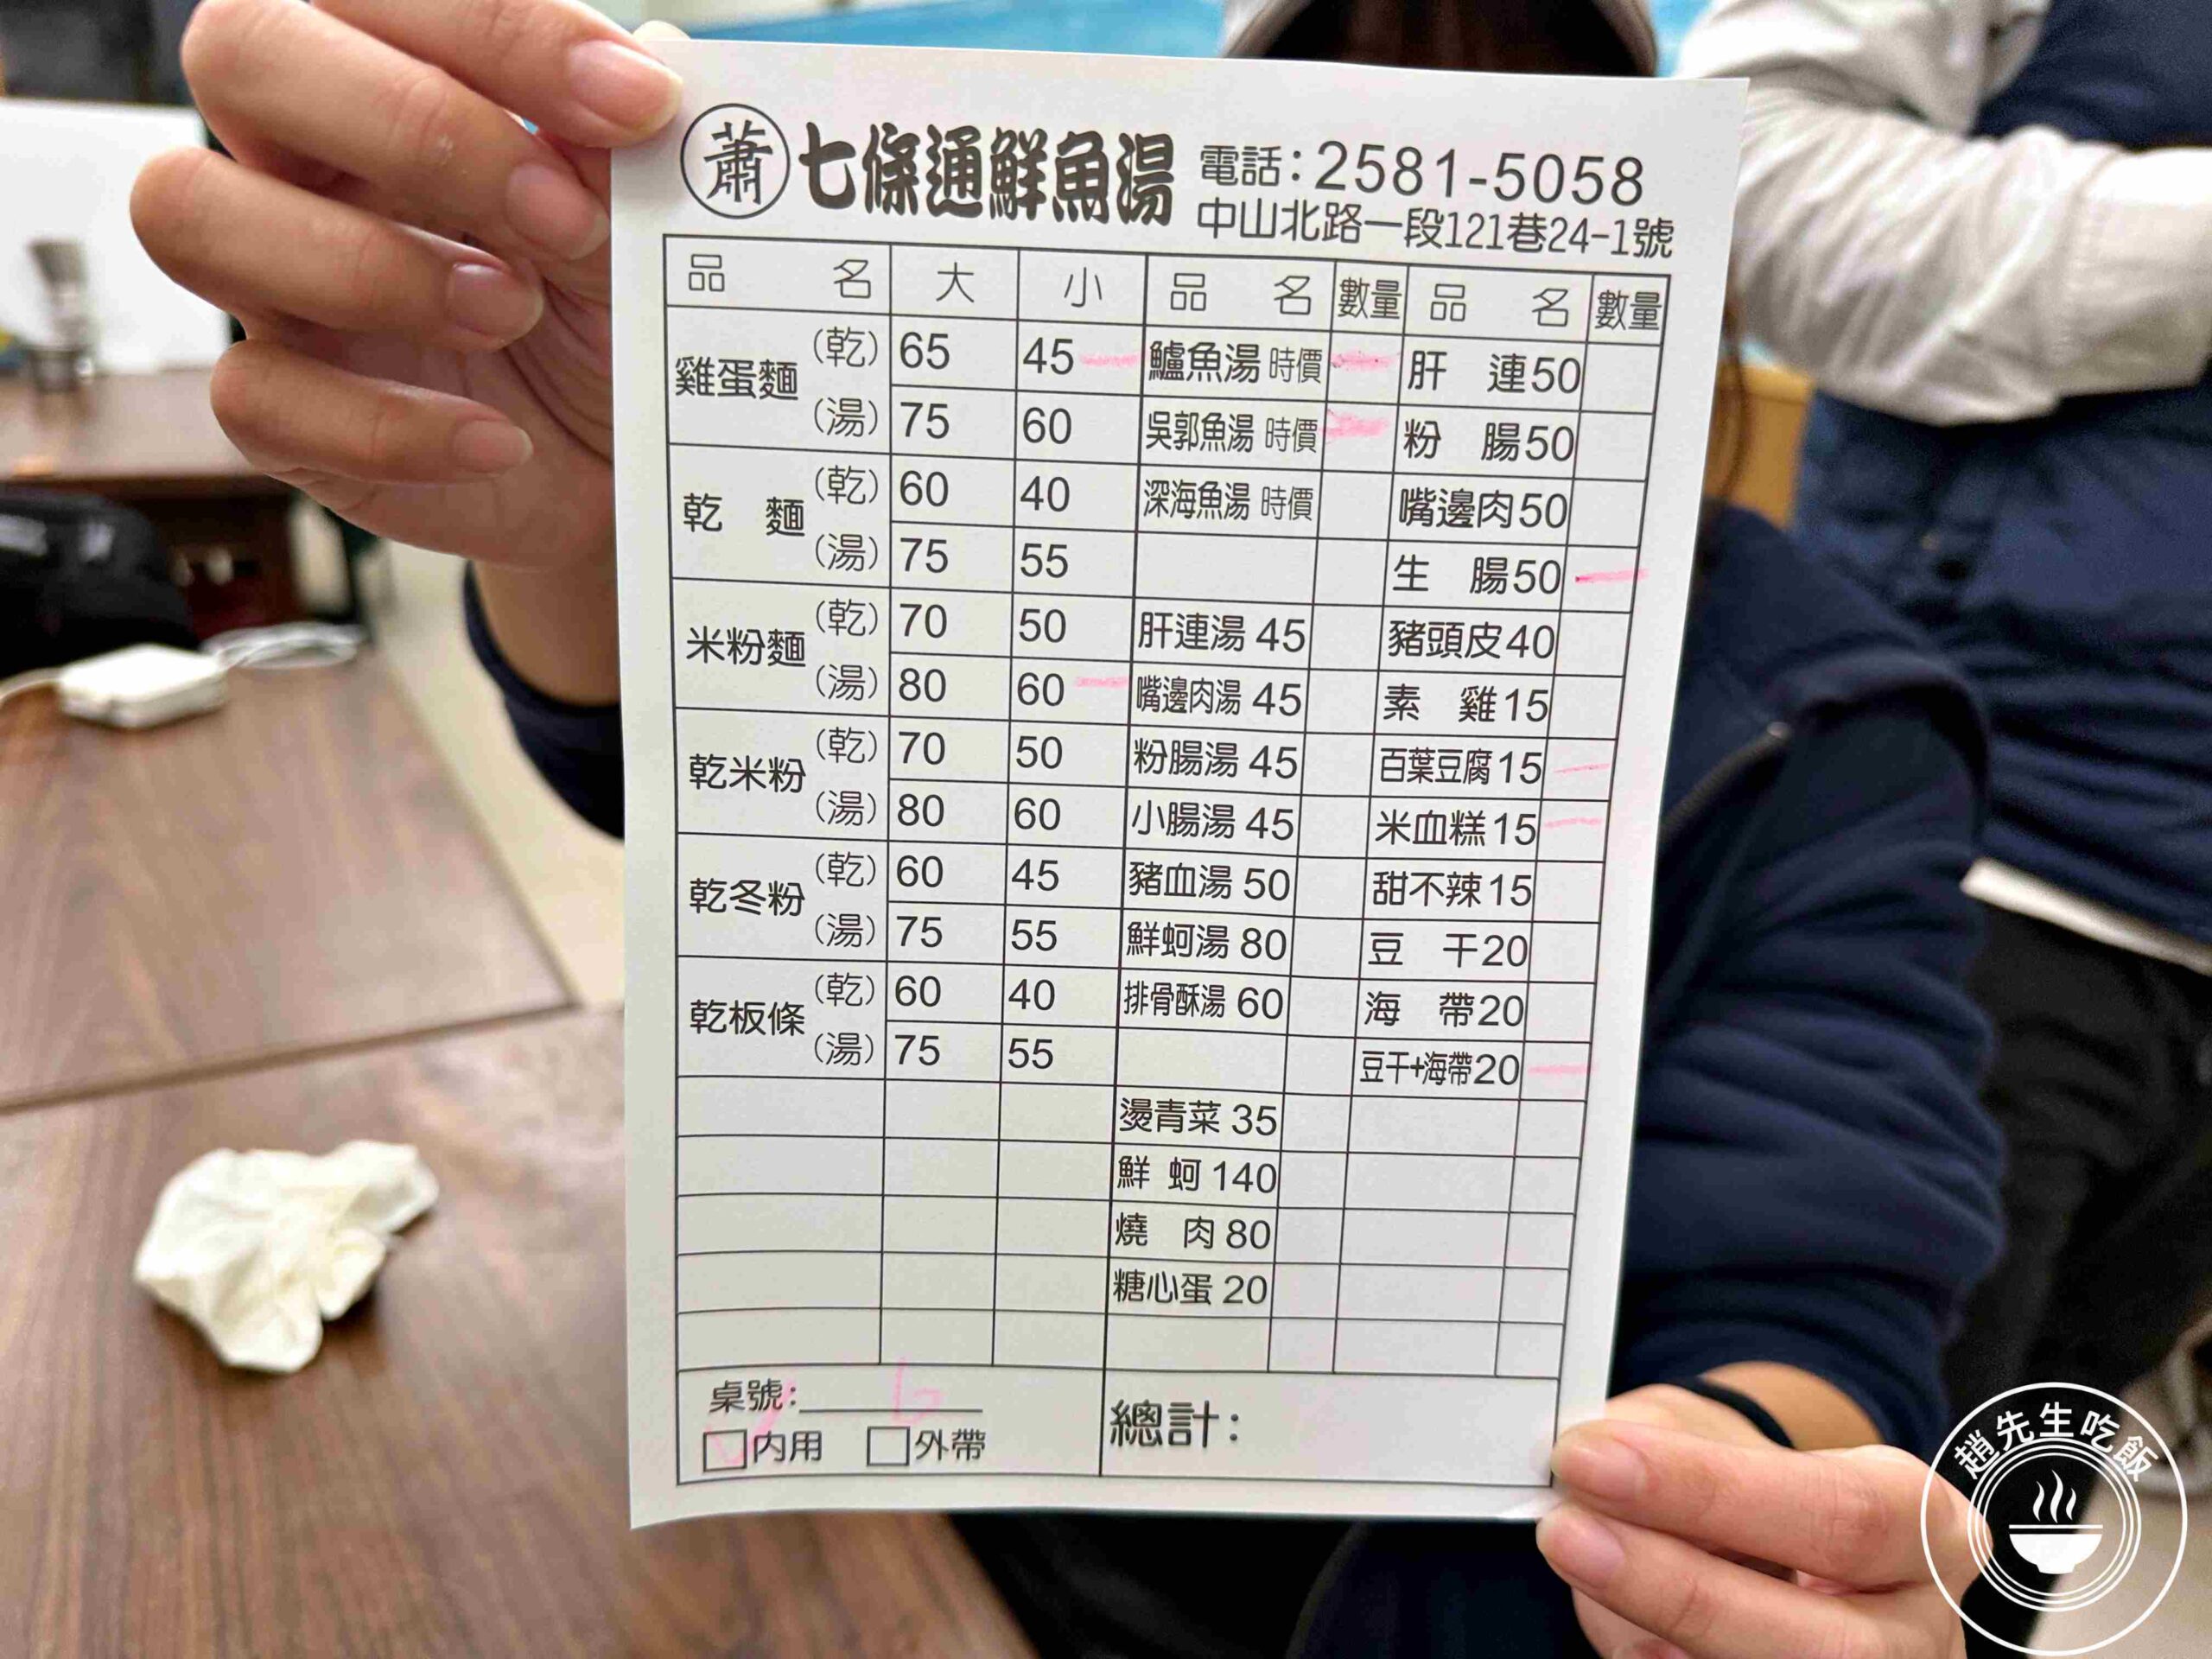 蕭 七條通鮮魚湯 電話：2581-5058
中山北路一段121巷24-1號
品名 大 小 品名 數量 品名 數量
雞蛋麵 (乾) 65 45 鱸魚湯 時價 肝連50
(湯) 75 60 吳郭魚湯 時價 粉腸50
乾麵 (乾) 60 40 深海魚湯 時價 嘴邊肉50
(湯) 75 55 生腸50
米粉麵 (乾) 70 50 肝連湯 45 豬頭皮40
(湯) 80 60 嘴邊肉湯 45 素雞15
乾米粉 (乾) 70 50 粉腸湯 45 百葉豆腐15
(湯) 80 60 小腸湯 45 米血糕15
乾冬粉 (乾) 60 45 豬血湯 50 甜不辣15
(湯) 75 55 鮮蚵湯 80 豆干20
乾板條 (乾) 60 40 排骨酥湯 60 海帶20
(湯) 75 55 豆干+海帶20
燙青菜 35
鮮蚵 140
燒肉 80
糖心蛋 20
桌號: 6
內用 外帶 總計：
趙先生吃飯